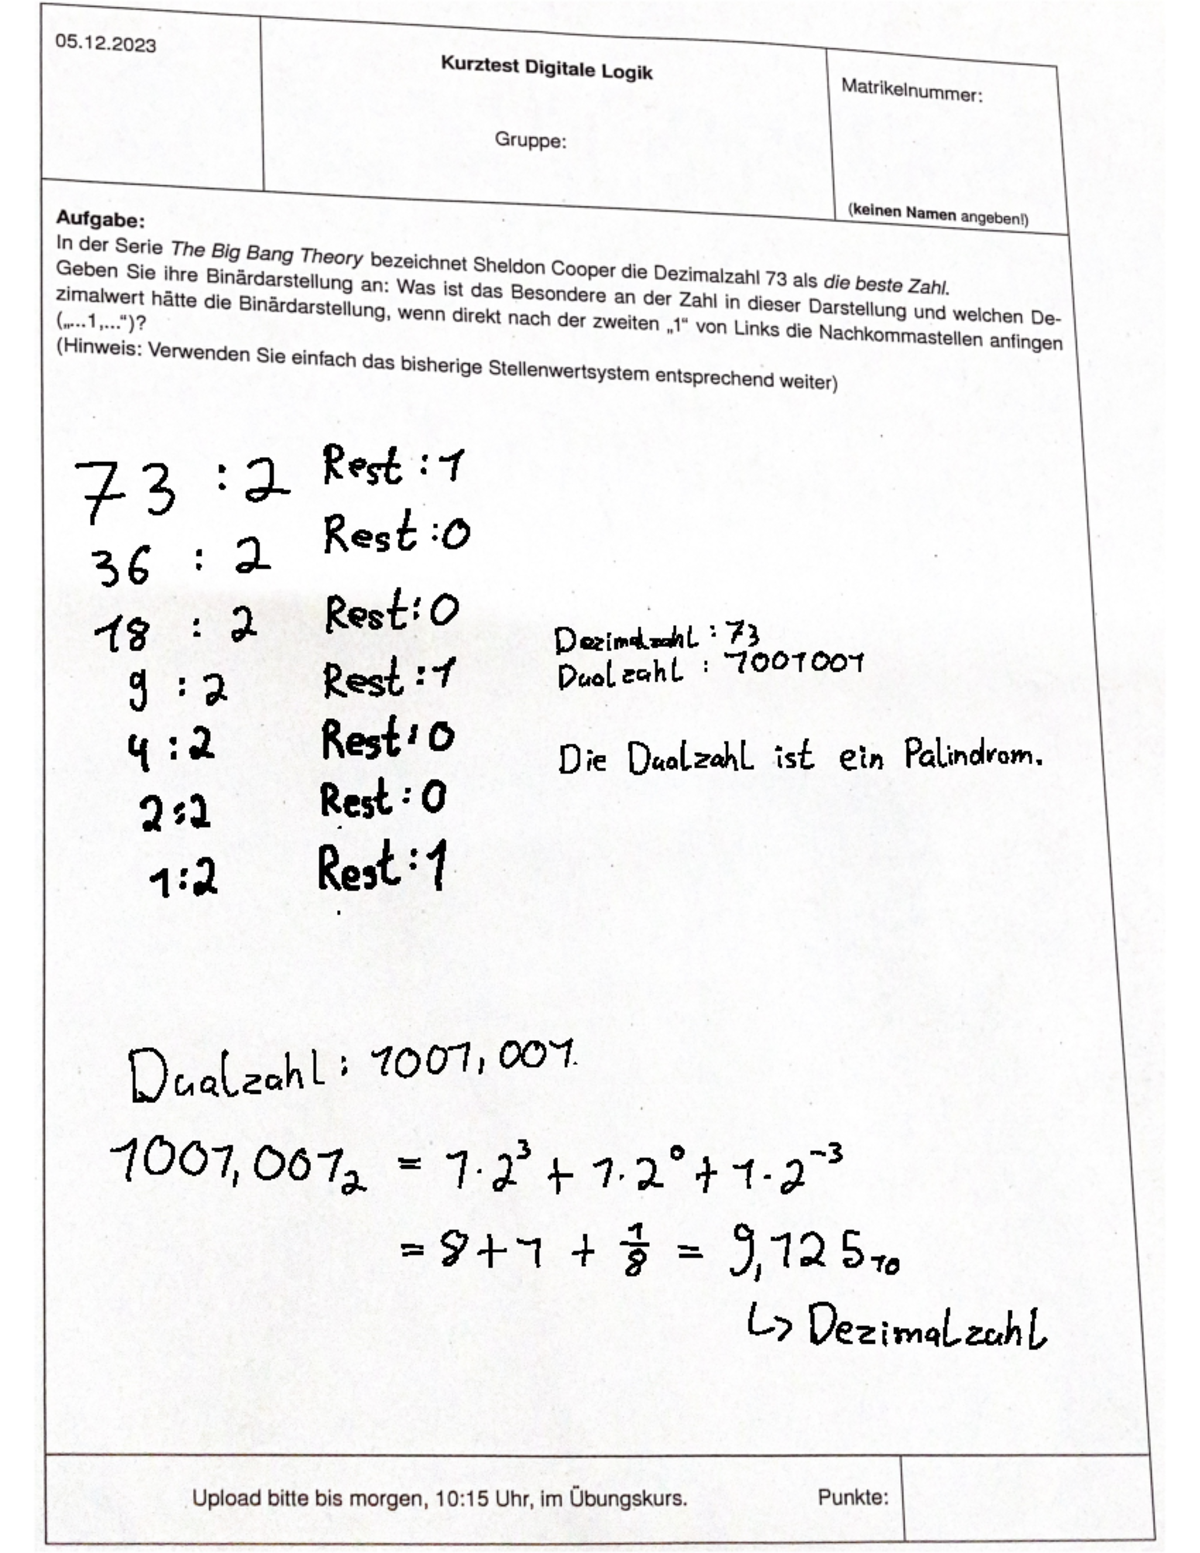 05.12.2023
Kurztest Digitale Logik
Gruppe:
Matrikelnummer:
(keinen Namen angeben!)
Aufgabe:
In der Serie The Big Bang Theory bezeichnet Sheldon Cooper die Dezimalzahl 73 als die beste Zahl.
Geben Sie ihre Binärdarstellung an: Was ist das Besondere an der Zahl in dieser Darstellung und welchen De-
zimalwert hätte die Binärdarstellung, wenn direkt nach der zweiten „1“ von Links die Nachkommastellen anfingen
(„...1,...“)?
(Hinweis: Verwenden Sie einfach das bisherige Stellenwertsystem entsprechend weiter)
73 : 2 Rest : 1
36 : 2 Rest : 0
18 : 2 Rest : 0
9 : 2 Rest : 1
4 : 2 Rest : 0
2 : 2 Rest : 0
1 : 2 Rest : 1
Dezimalzahl : 73
Dualzahl : 1001001
Die Dualzahl ist ein Palindrom.
Dualzahl : 1001,001
1001,001₂ = 1·2³ + 1·2⁰ + 1·2⁻³
= 8 + 1 + 1/8 = 9,125₁₀
↳ Dezimalzahl
Upload bitte bis morgen, 10:15 Uhr, im Übungskurs.
Punkte: